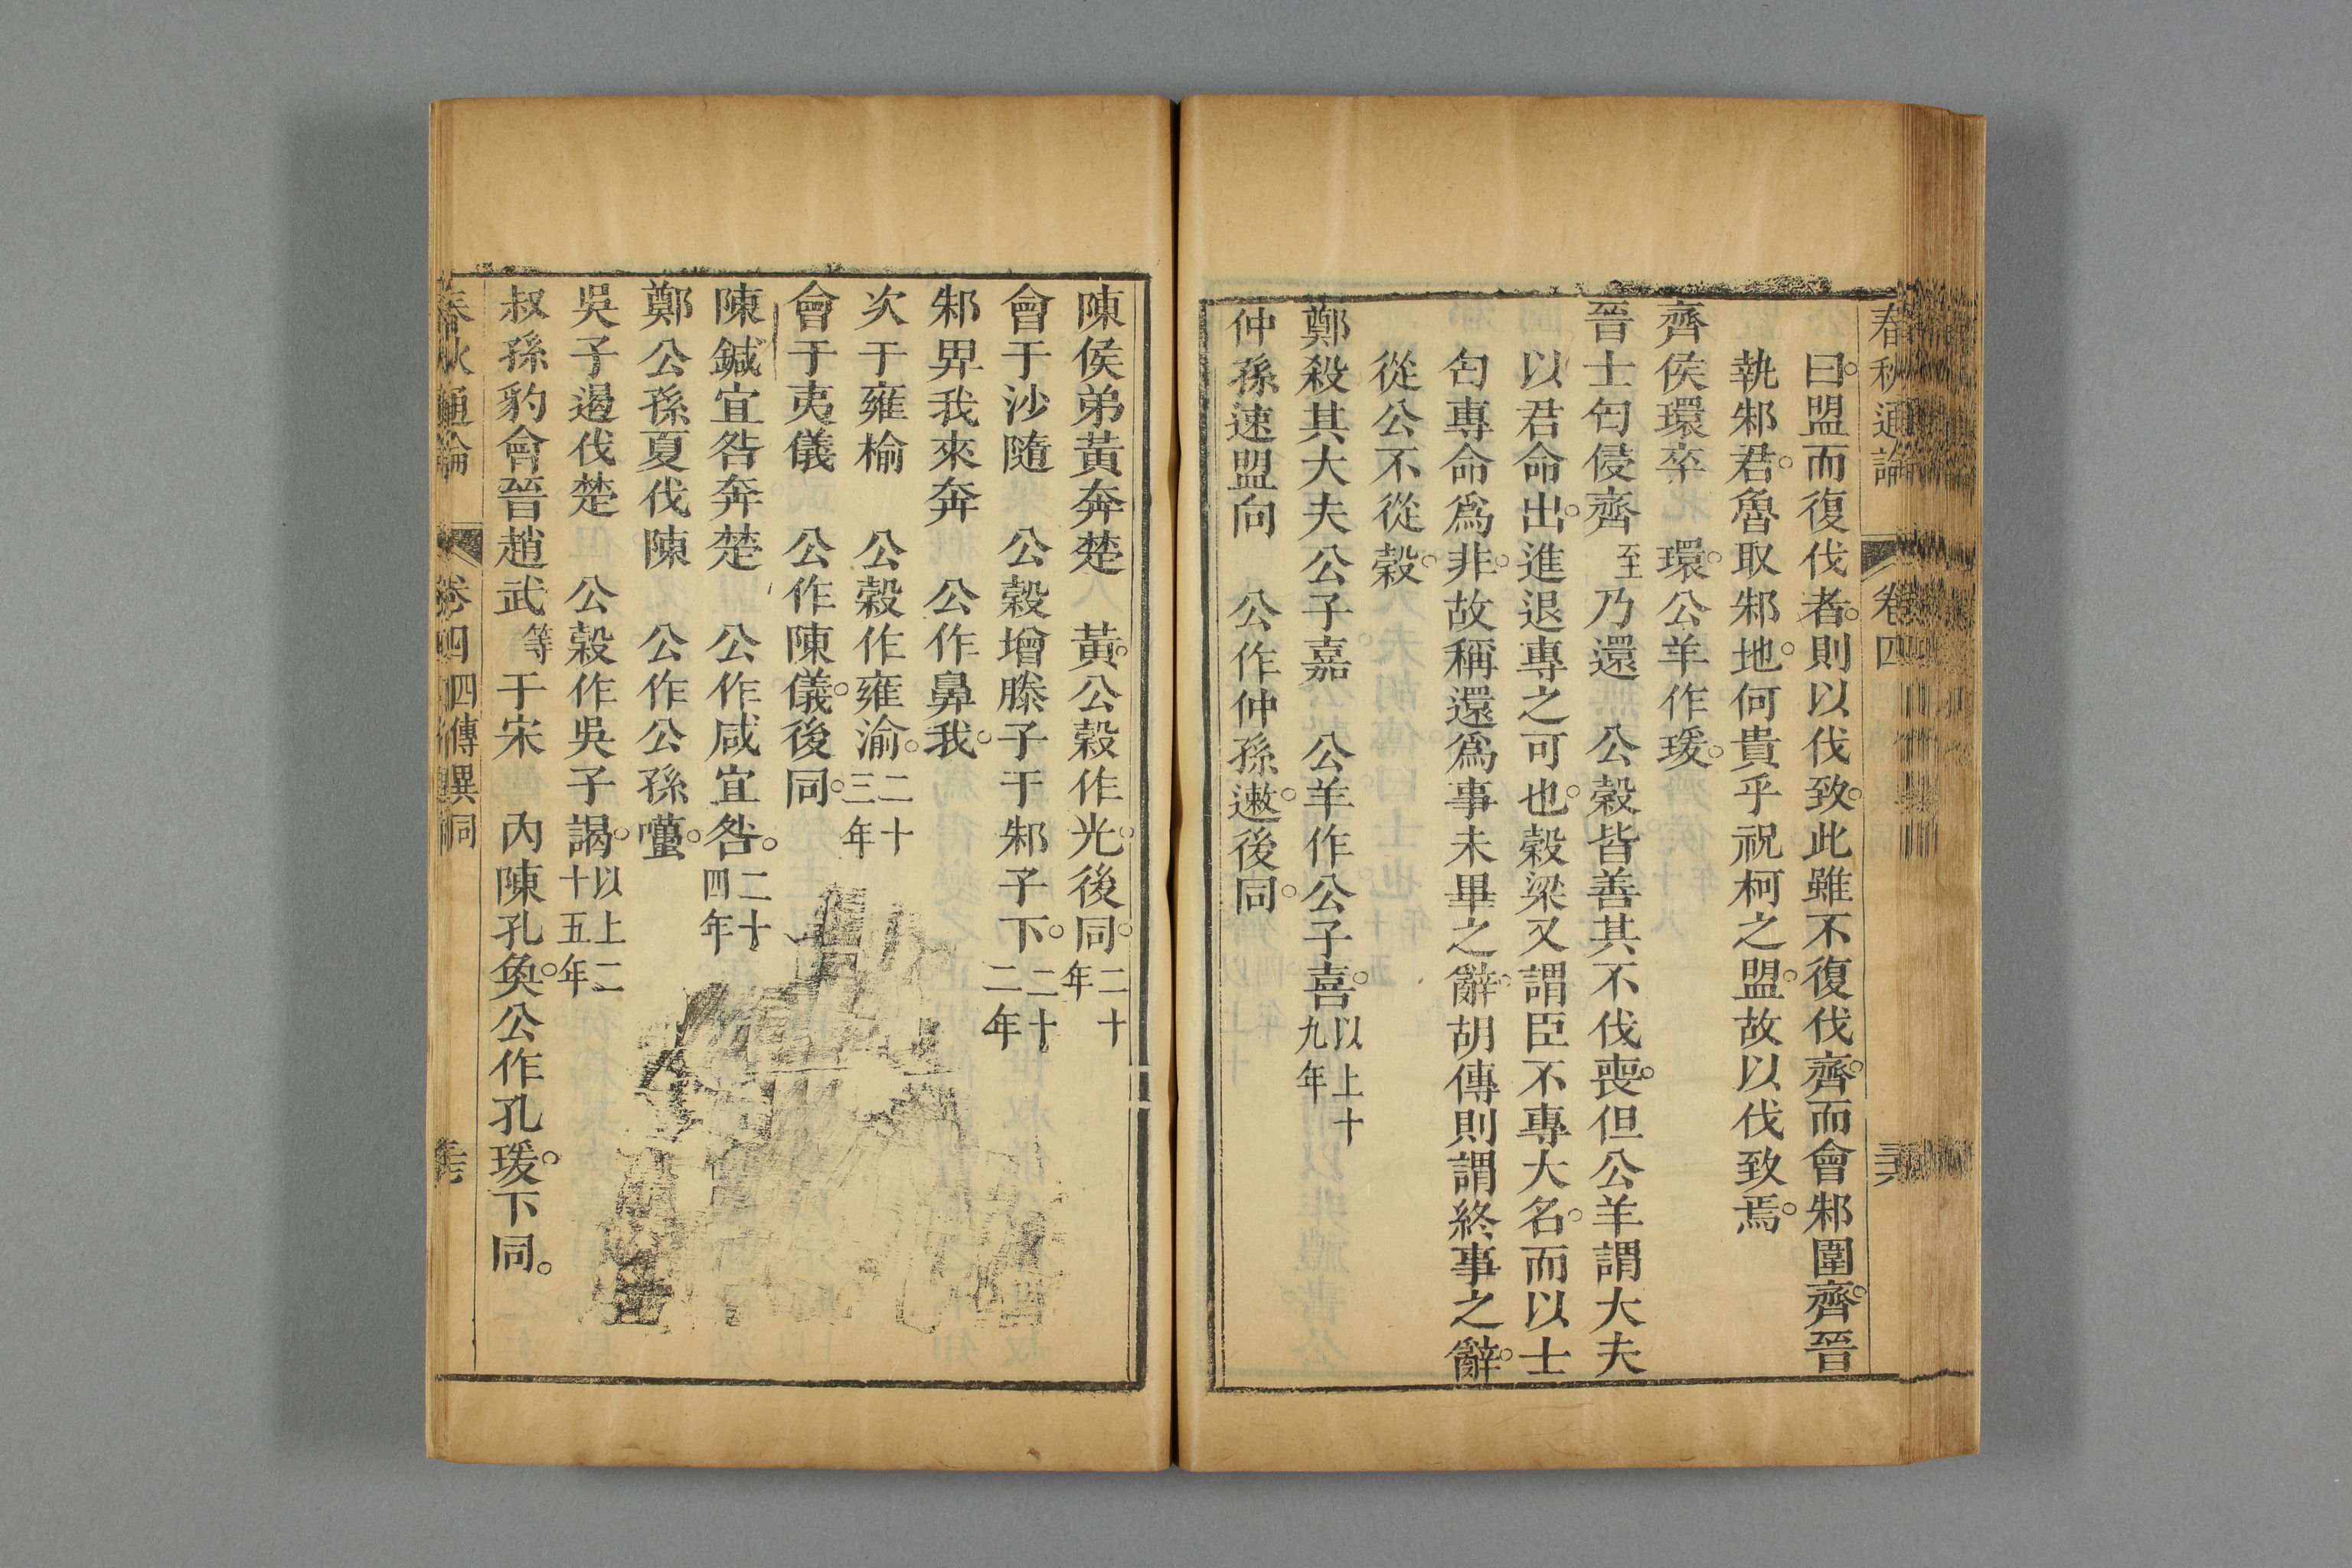 春秋通論 卷四
曰盟而復伐者則以伐致此雖不復伐齊而會邾圍齊晉
執邾君魯取邾地何貴乎祝柯之盟故以伐致焉
齊侯環卒 環公羊作瑗
晉士匄侵齊至乃還 公穀皆善其不伐喪但公羊謂大夫
以君命出進退專之可也穀梁又謂臣不專大名而以士
匄專命爲非故稱還爲事未畢之辭胡傳則謂終事之辭
從公不從穀
鄭殺其大夫公子嘉 公羊作公子喜以上十九年
仲孫速盟向 公作仲孫遬後同
陳侯弟黃奔楚 黃公穀作光後同二十年
會于沙隨 公穀增滕子于邾子下二十二年
邾畀我來奔 公作鼻我
次于雍榆 公穀作雍渝二十三年
會于夷儀 公作陳儀後同
陳鍼宜咎奔楚 公作咸宜咎二十四年
鄭公孫夏伐陳 公作公孫囆
吳子遏伐楚 公穀作吳子謁以上二十五年
叔孫豹會晉趙武等于宋 內陳孔奐公作孔瑗下同
春秋通論 卷四 四傳異同